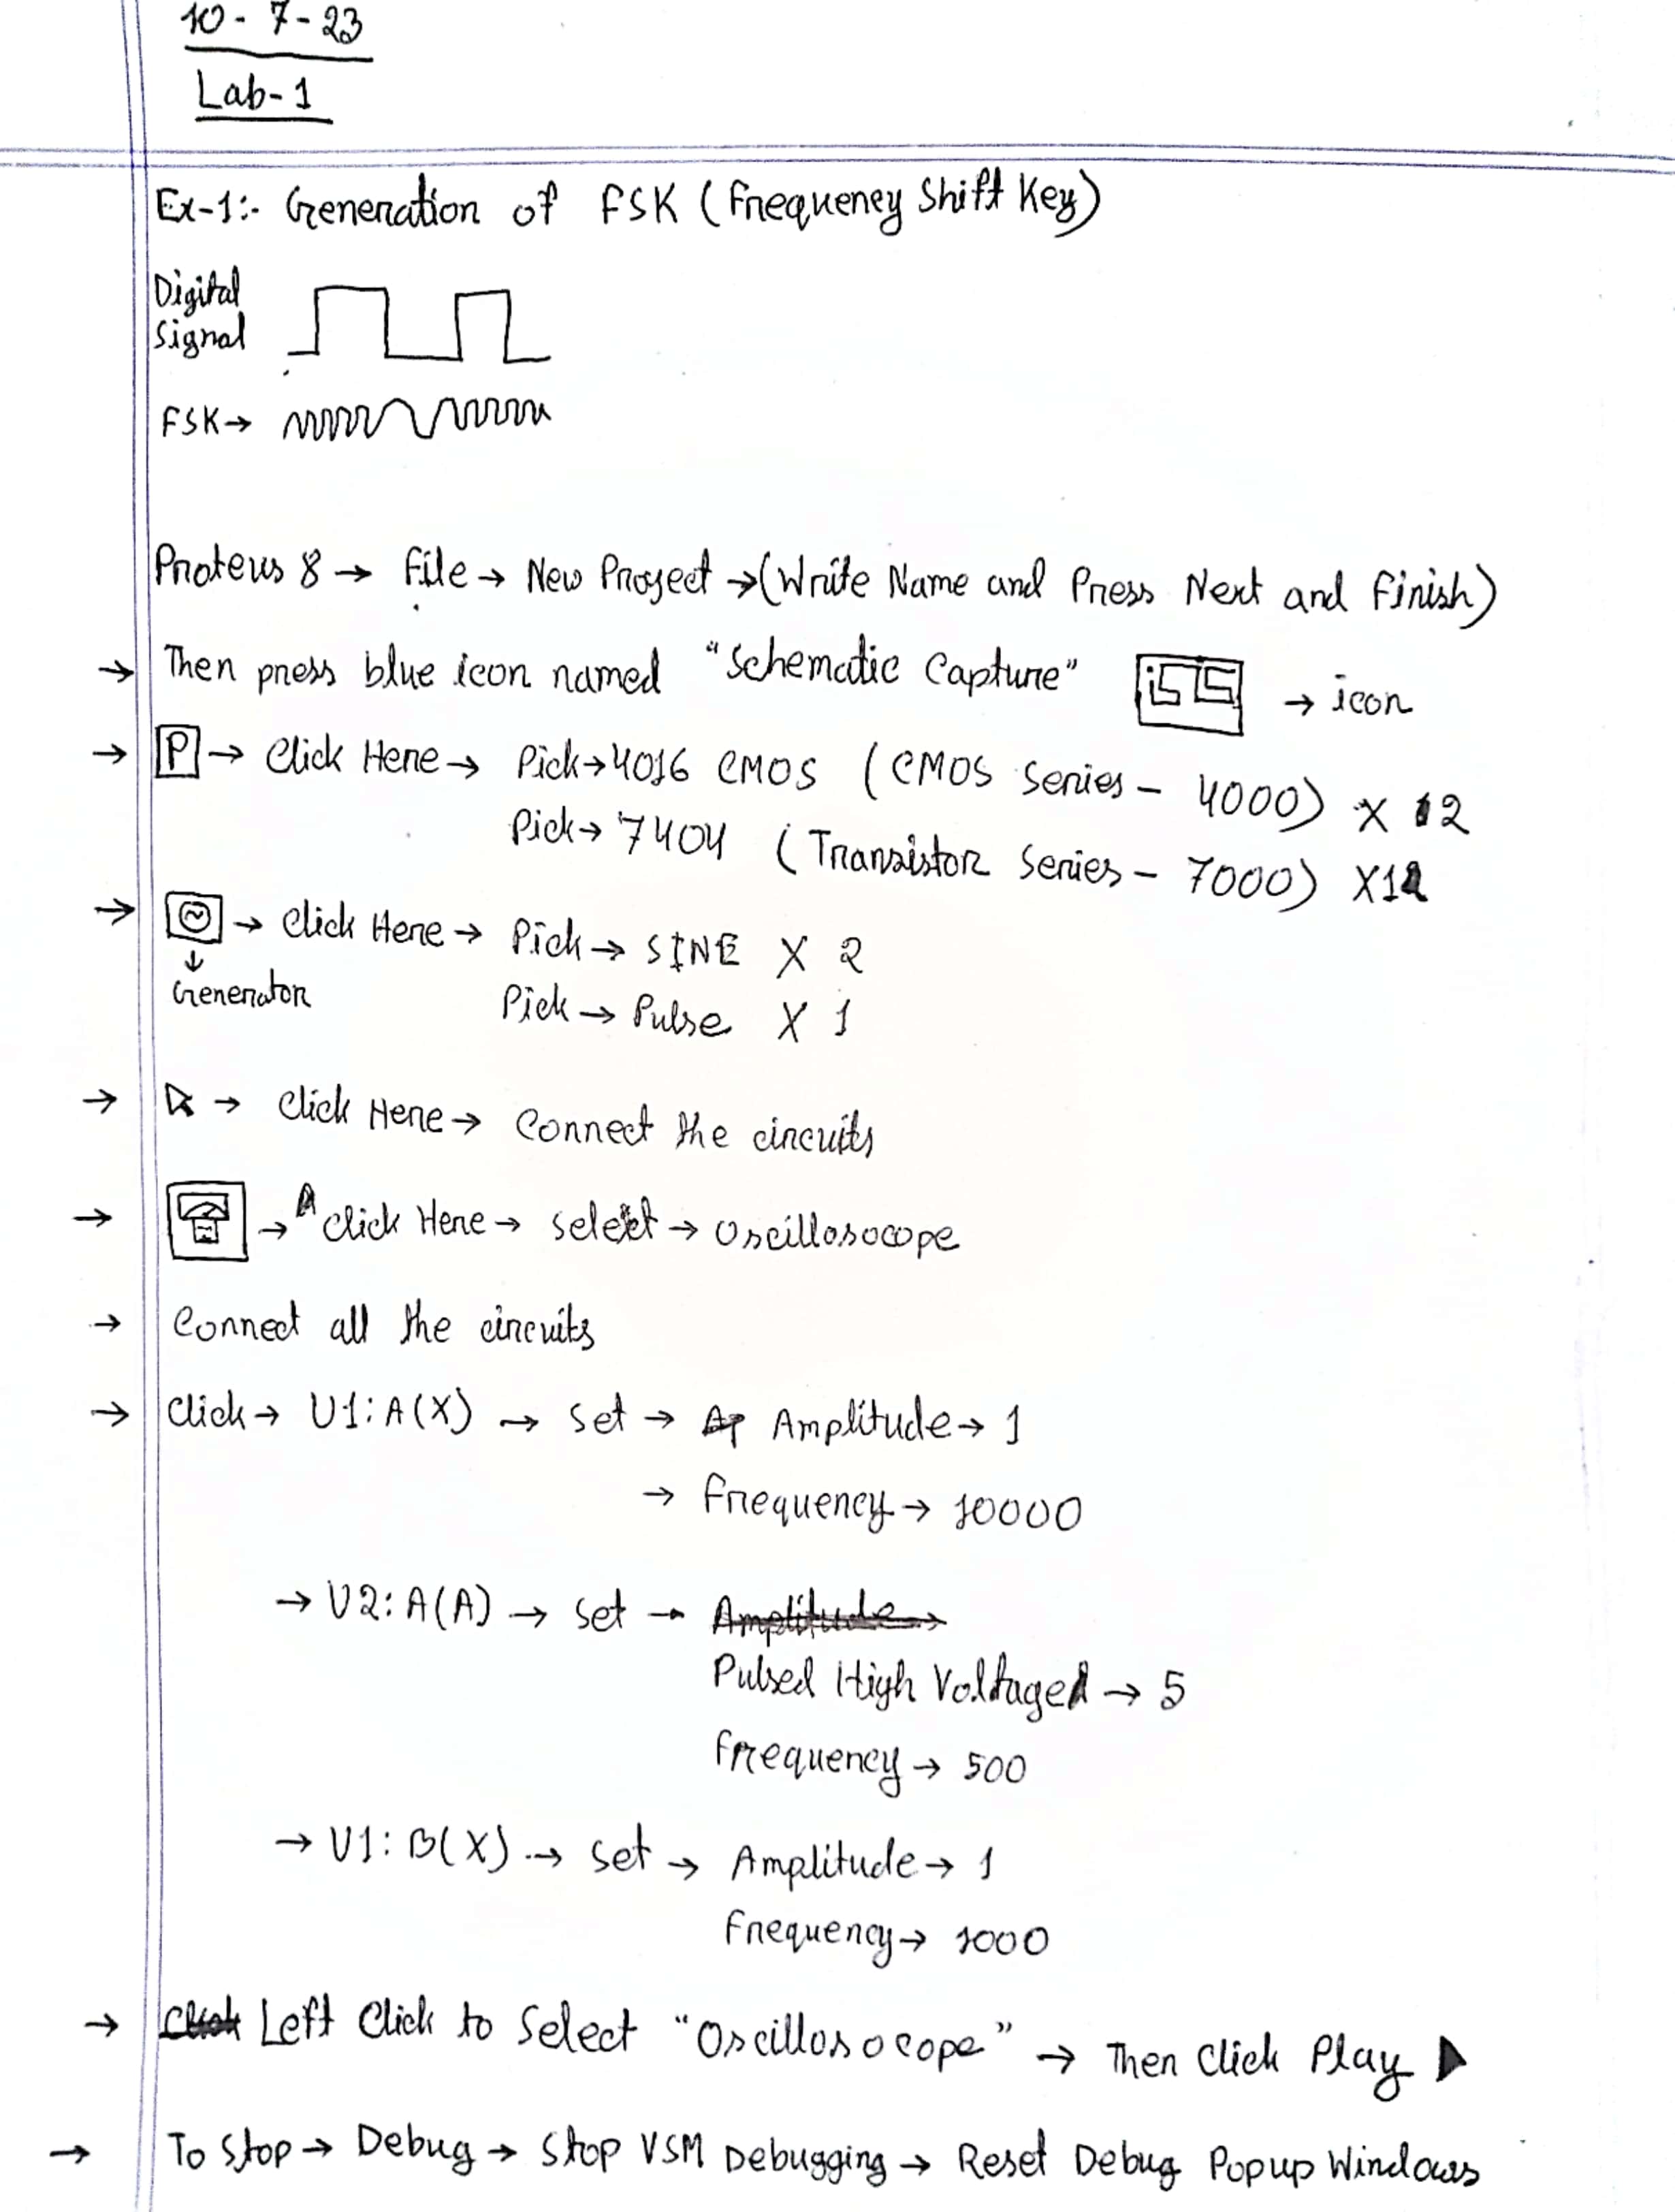 10-7-23
Lab-1
Ex-1:- Generation of FSK (Frequency Shift Key)
Digital
Signal
FSK→
Proteus 8 → File → New Project → (Write Name and Press Next and Finish)
→ Then press blue icon named "Schematic Capture" isis → icon
→ P → Click Here → Pick → 4016 CMOS (CMOS Series - 4000) X 2
Pick → 7404 (Transistor Series - 7000) X1
→ → Click Here → Pick → SINE X 2
↓
Generator
Pick → Pulse X 1
→ → Click Here → Connect the circuits
→ → Click Here → Select → Oscillosocope
→ Connect all the circuits
→ Click → U1:A(X) → Set → Amplitude → 1
→ Frequency → 10000
→ U2:A(A) → Set → Amplitude →
Pulsed High Voltage → 5
Frequency → 500
→ U1:B(X) → Set → Amplitude → 1
Frequency → 1000
→ Left Click to Select "Oscillosocope" → Then Click Play ▶
→ To Stop → Debug → Stop VSM Debugging → Reset Debug Popup Windows